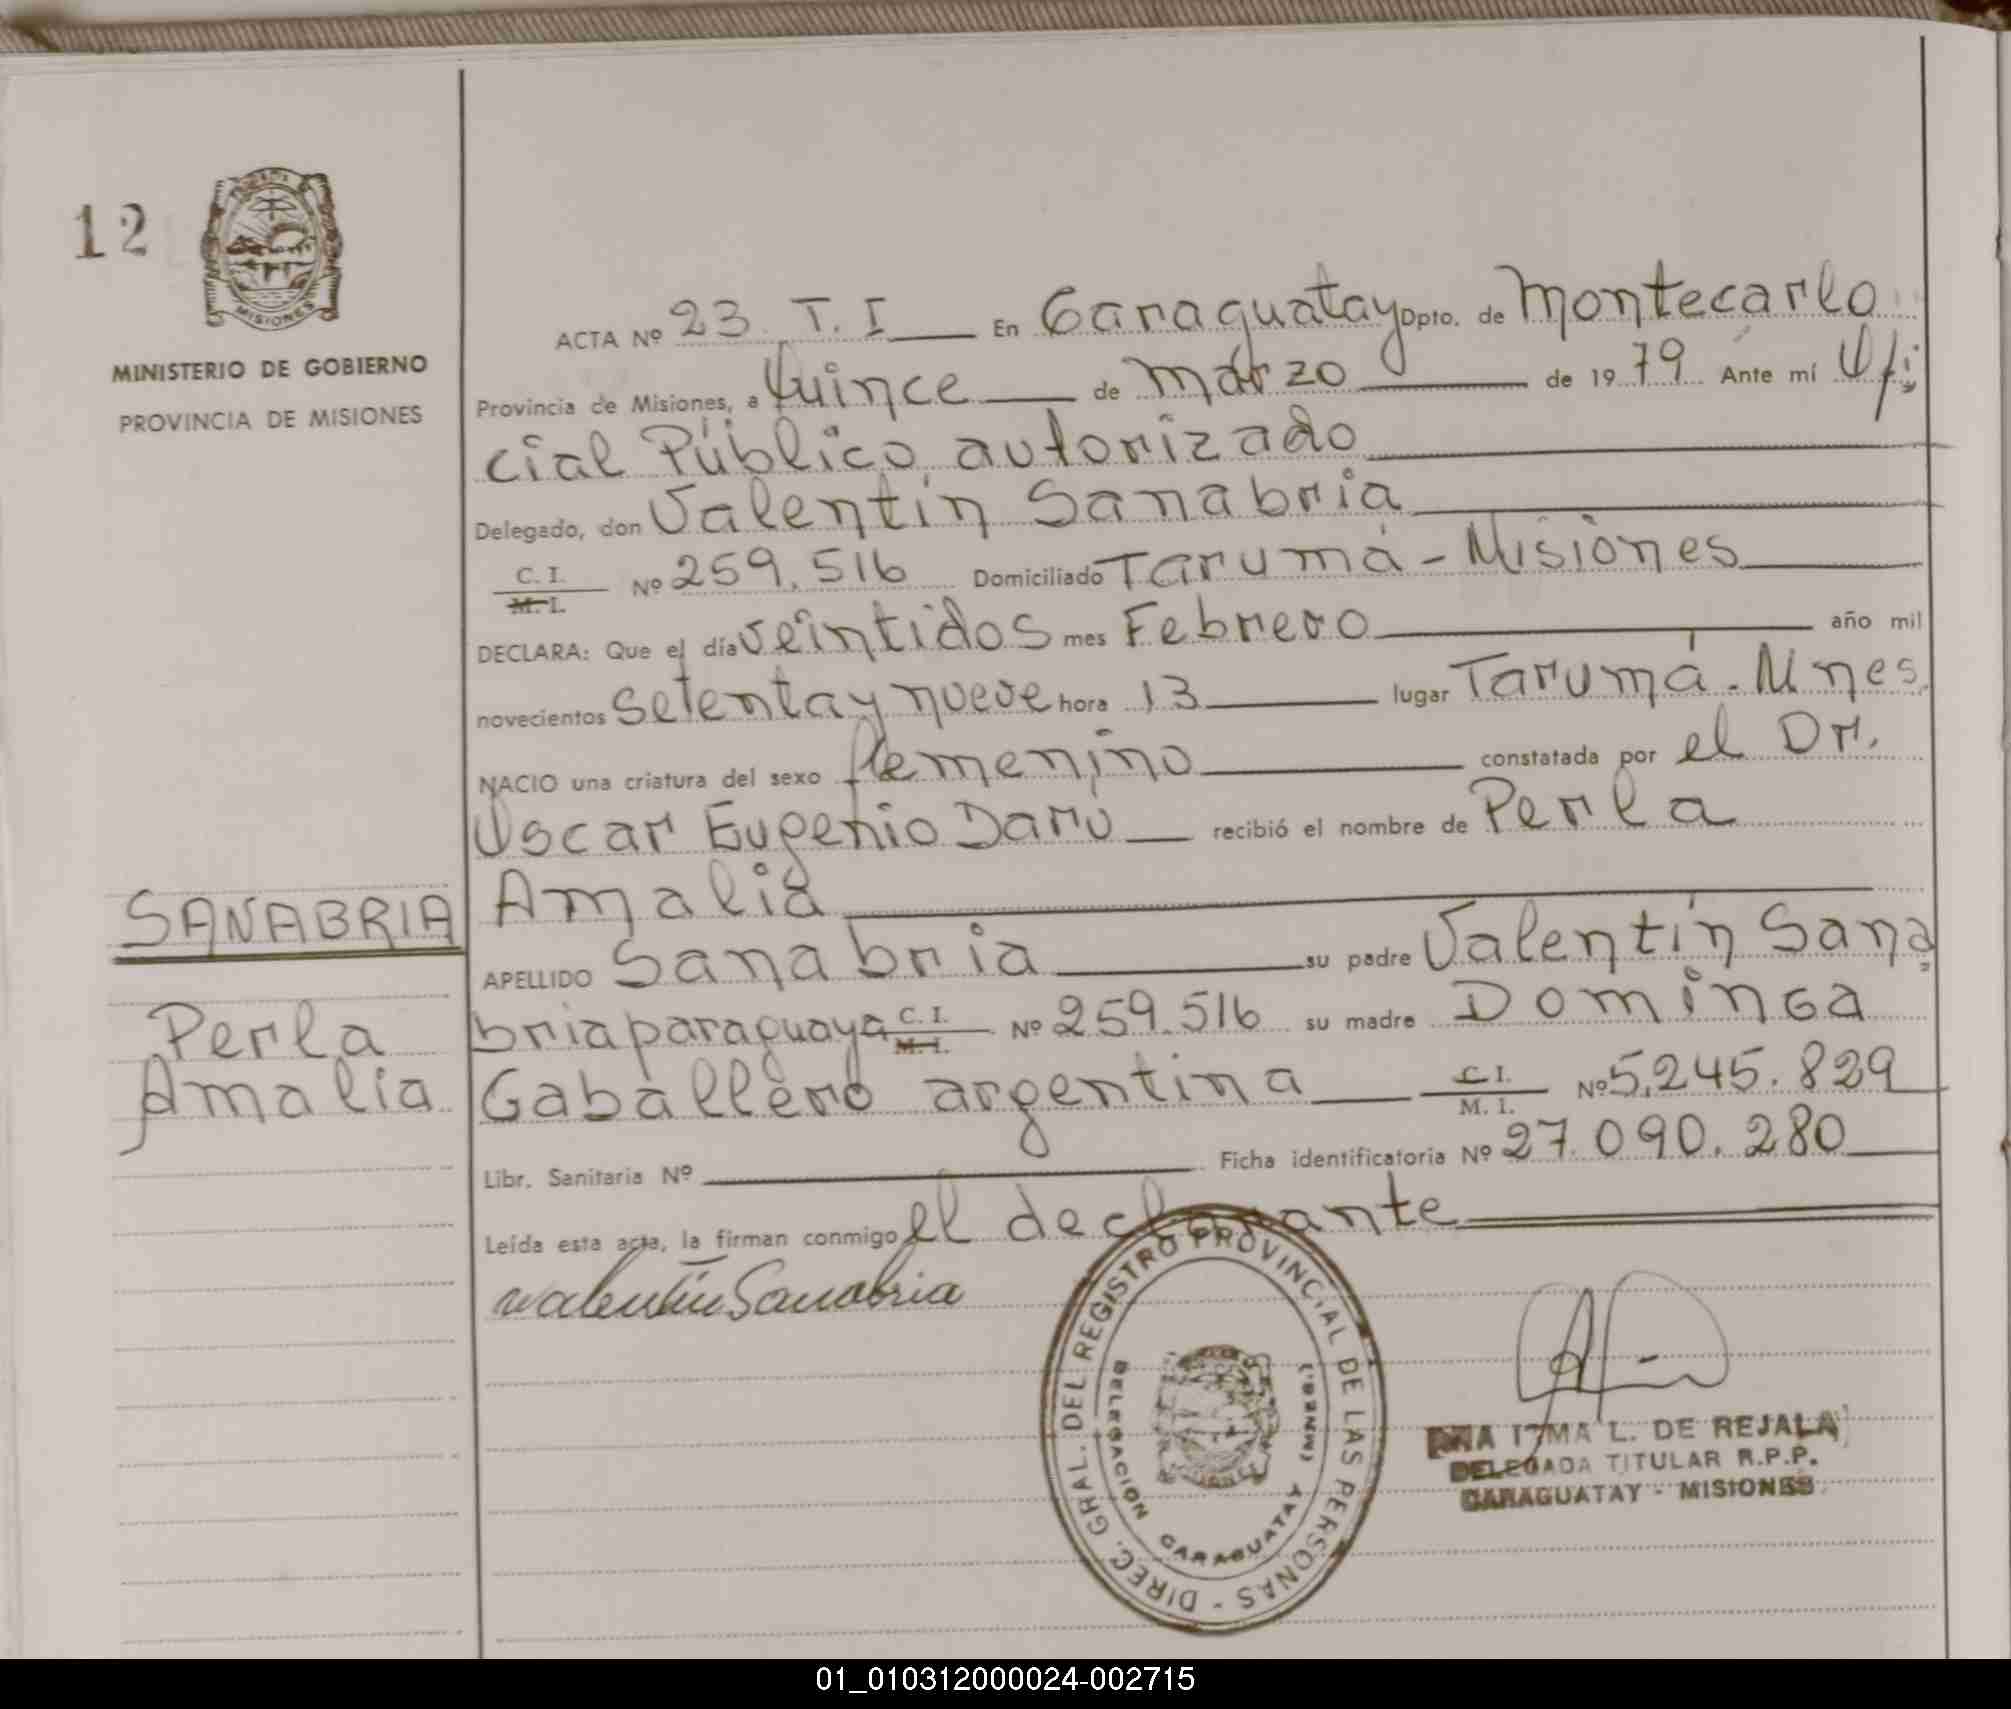 12
MISIONES
MINISTERIO DE GOBIERNO
PROVINCIA DE MISIONES
ACTA Nº 23 T. I En Caraguatay Dpto. de Montecarlo
Provincia de Misiones, a Quince de Marzo de 1979 Ante mí Ofi
cial Público autorizado
Delegado, don Valentín Sanabria
C. I. M. I. Nº 259.516 Domiciliado Tarumá - Misiones
DECLARA: Que el día veintidos mes Febrero año mil
novecientos setenta y nueve hora 13 lugar Tarumá. Mnes.
NACIO una criatura del sexo femenino constatada por el Dr.
Oscar Eugenio Daru recibió el nombre de Perla
Amalia
APELLIDO Sanabria su padre Valentín Sana
bria paraguaya C. I. M. I. Nº 259.516 su madre Dominga
Caballero argentina C. I. M. I. Nº 5.245.829
Libr. Sanitaria Nº Ficha identificatoria Nº 27.090.280
Leída esta acta, la firman conmigo el declarante
Valentín Sanabria
SANABRIA
Perla
Amalia
DIREC. GRAL. DEL REGISTRO PROVINCIAL DE LAS PERSONAS
DELEGACION CARAGUATAY (MNES.)
L. DE REJALA
DELEGADA TITULAR R.P.P.
CARAGUATAY - MISIONES
01_010312000024-002715